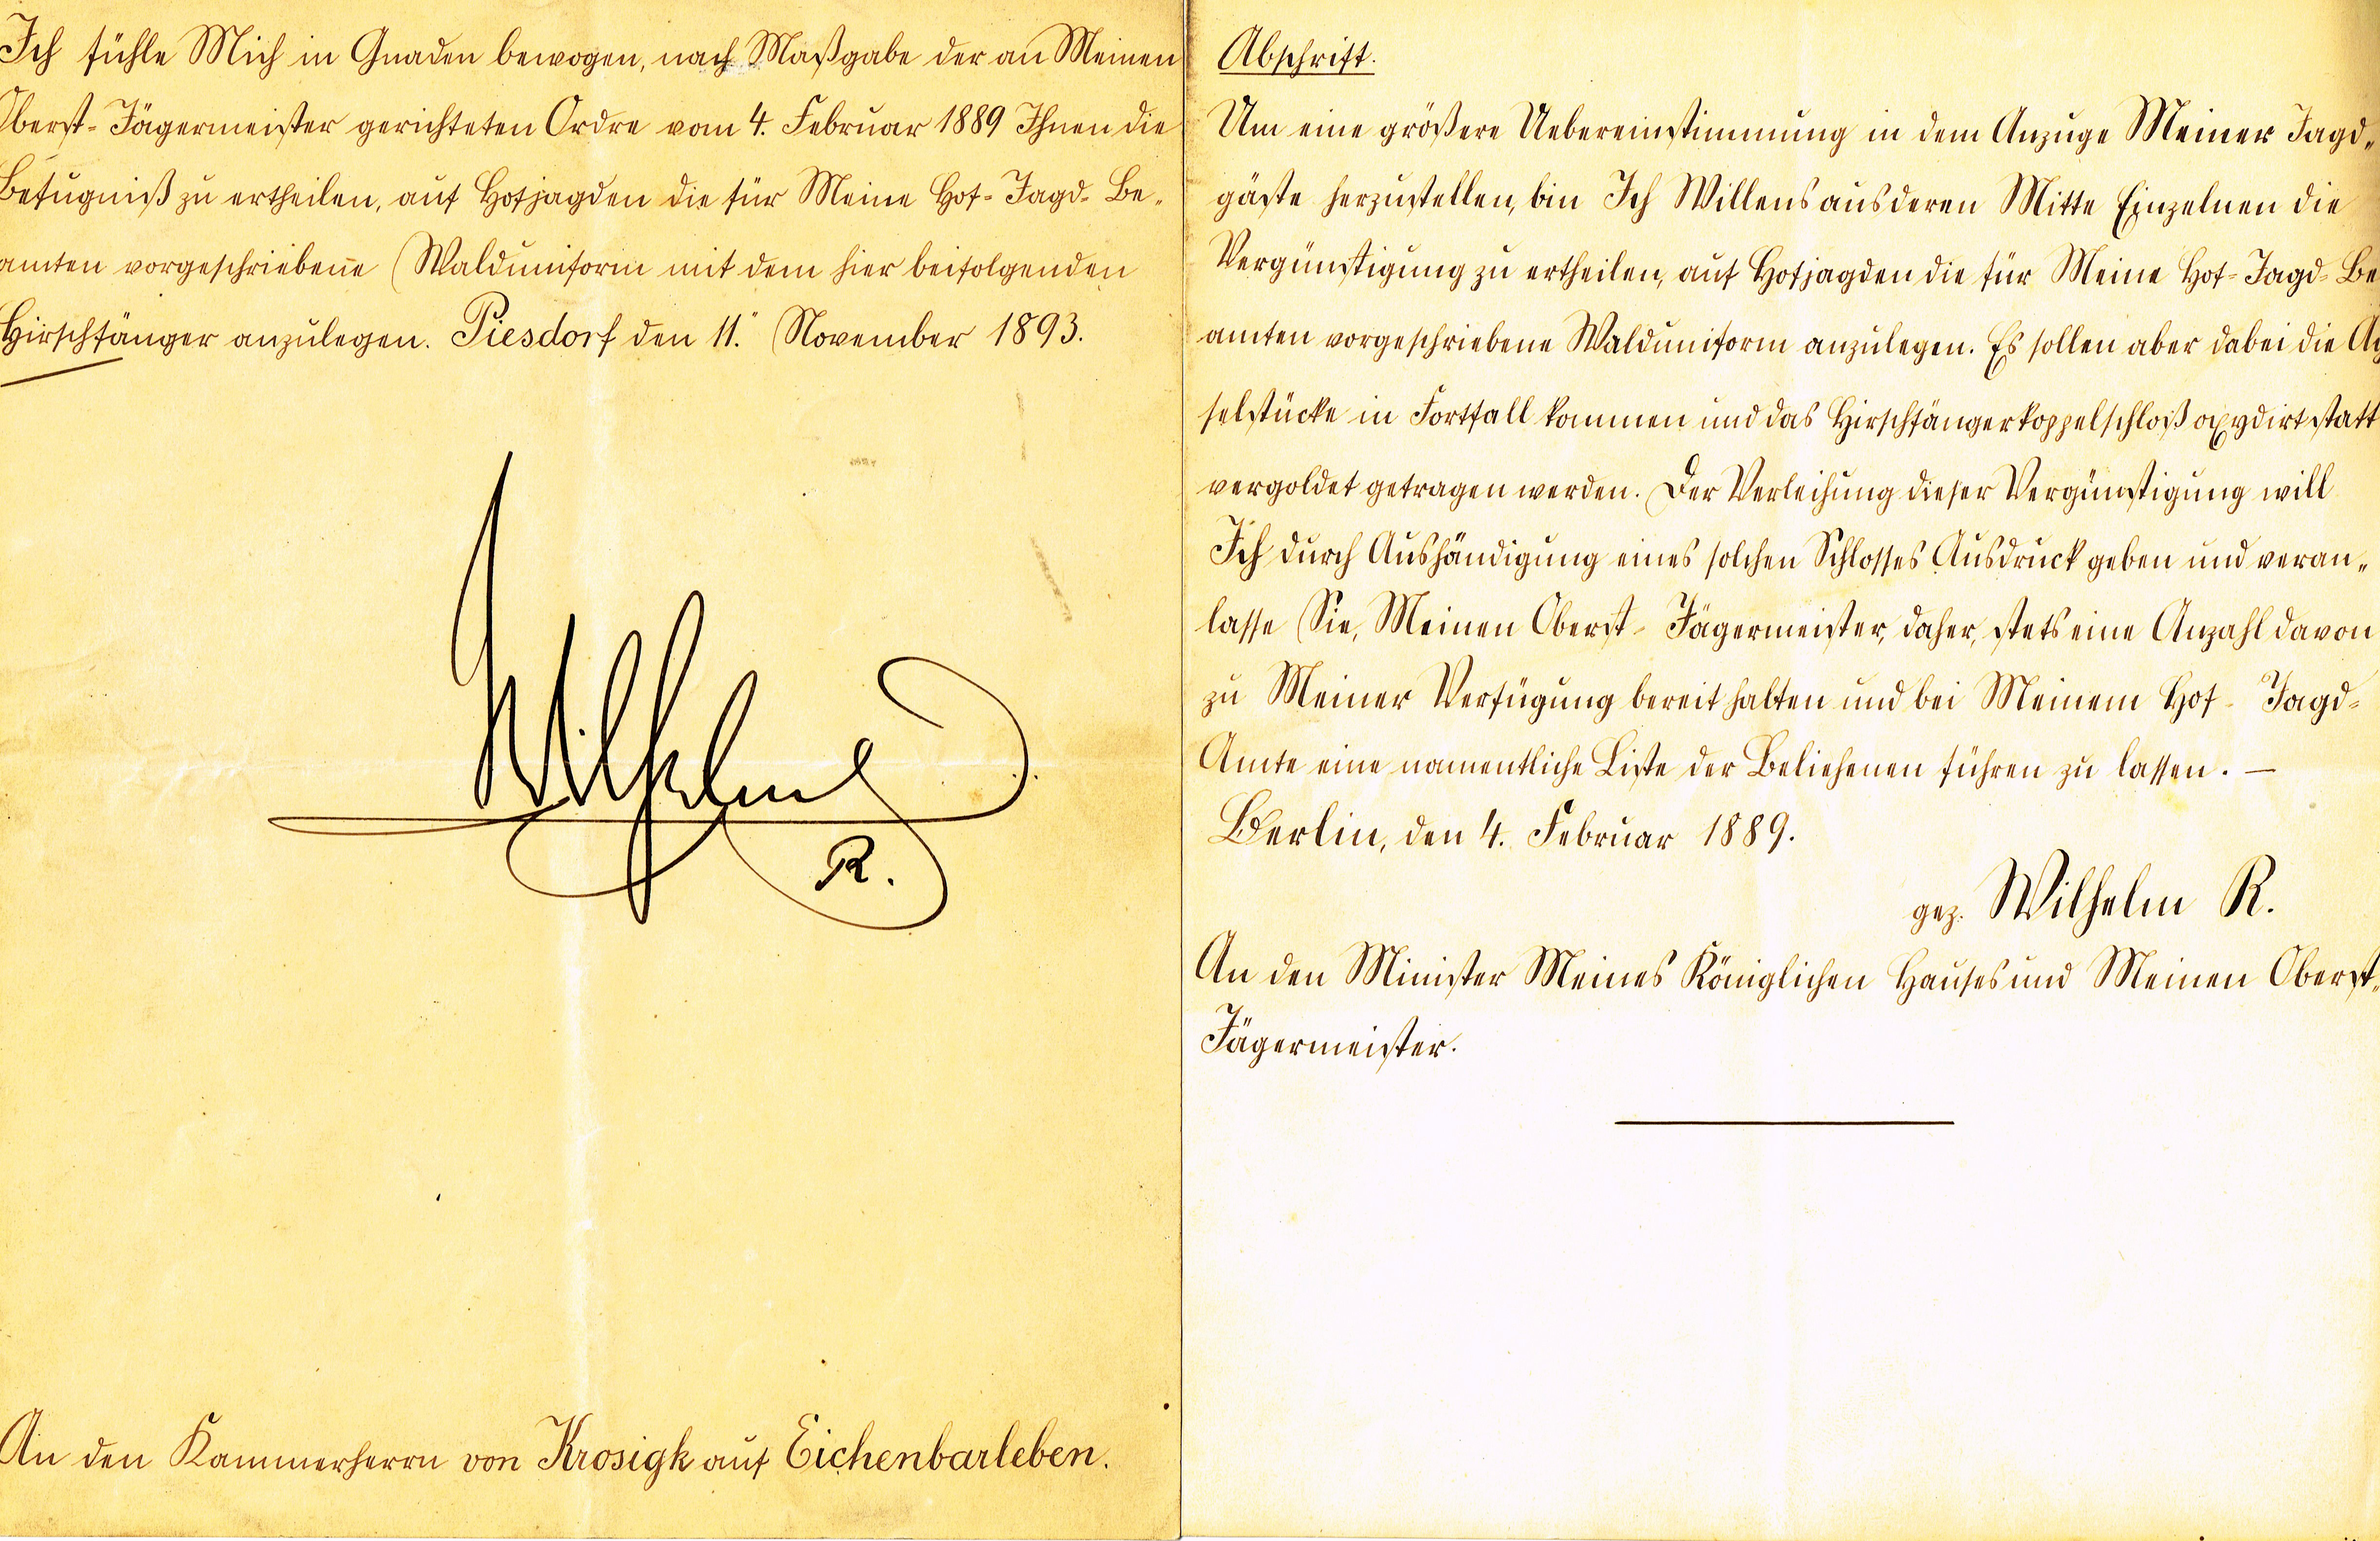 Ich fühle Mich in Gnaden bewogen, nach Maßgabe der an Meinen
Oberst-Jägermeister gerichteten Ordre vom 4. Februar 1889 Ihnen die
Befugniß zu ertheilen, auf Hofjagden die für Meine Hof-Jagd-Be-
amten vorgeschriebene Walduniform mit dem hier beifolgenden
Hirschfänger anzulegen. Piesdorf den 11. November 1893.
Wilhelm
R.
An den Kammerherrn von Krosigk auf Eichenbarleben.
Abschrift.
Um eine größere Uebereinstimmung in dem Anzuge Meiner Jagd-
gäste herzustellen, bin Ich Willens aus deren Mitte Einzelnen die
Vergünstigung zu ertheilen, auf Hofjagden die für Meine Hof-Jagd-Be
amten vorgeschriebene Walduniform anzulegen. Es sollen aber dabei die Ac
selstücke in Fortfall kommen und das Hirschfängerkoppelschloß oxydirt statt
vergoldet getragen werden. Der Verleihung dieser Vergünstigung will
Ich durch Aushändigung eines solchen Schlosses Ausdruck geben und veran-
lasse Sie, Meinen Oberst-Jägermeister, daher, stets eine Anzahl davon
zu Meiner Verfügung bereit halten und bei Meinem Hof-Jagd-
Amte eine namentliche Liste der Beliehenen führen zu lassen. —
Berlin, den 4. Februar 1889.
gez. Wilhelm R.
An den Minister Meines Königlichen Hauses und Meinen Oberst-
Jägermeister.